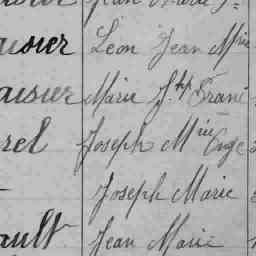 Jean Marie J.
aisier Léon Jean Mie
aisier Marie J.ph Franc
rel Joseph Mie Ange
Joseph Marie
ault Jean Marie